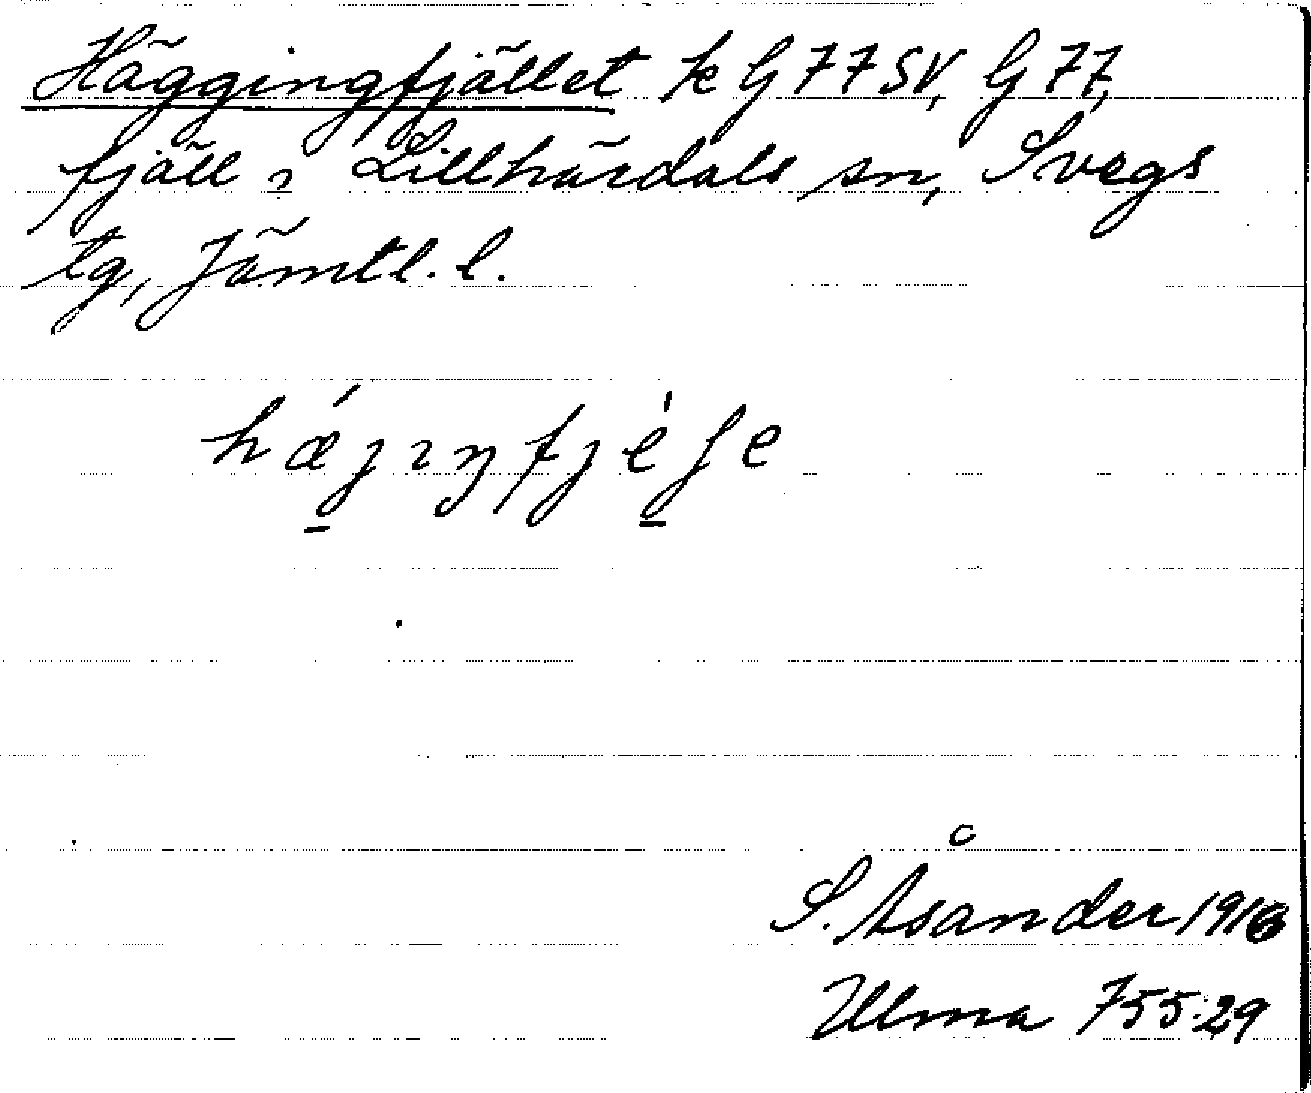 Häggingfjället k G 77 SV, G 77,
fjäll i Lillhärdals sn, Svegs
tg, Jämtl. l.
S. Åsander 1916
Ulma 755:29